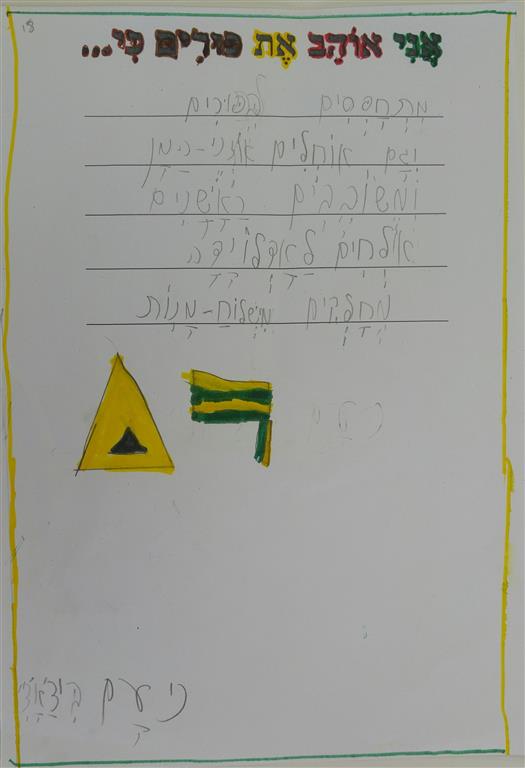 18
אֲנִי אוֹהֵב אֶת פּוּרִים כִּי...
מתחפסים
וגם אוחלים אזני-המן
ומשובבים ראשנים
אולחים לאדלוידה
מחלקים משלוח-מנות